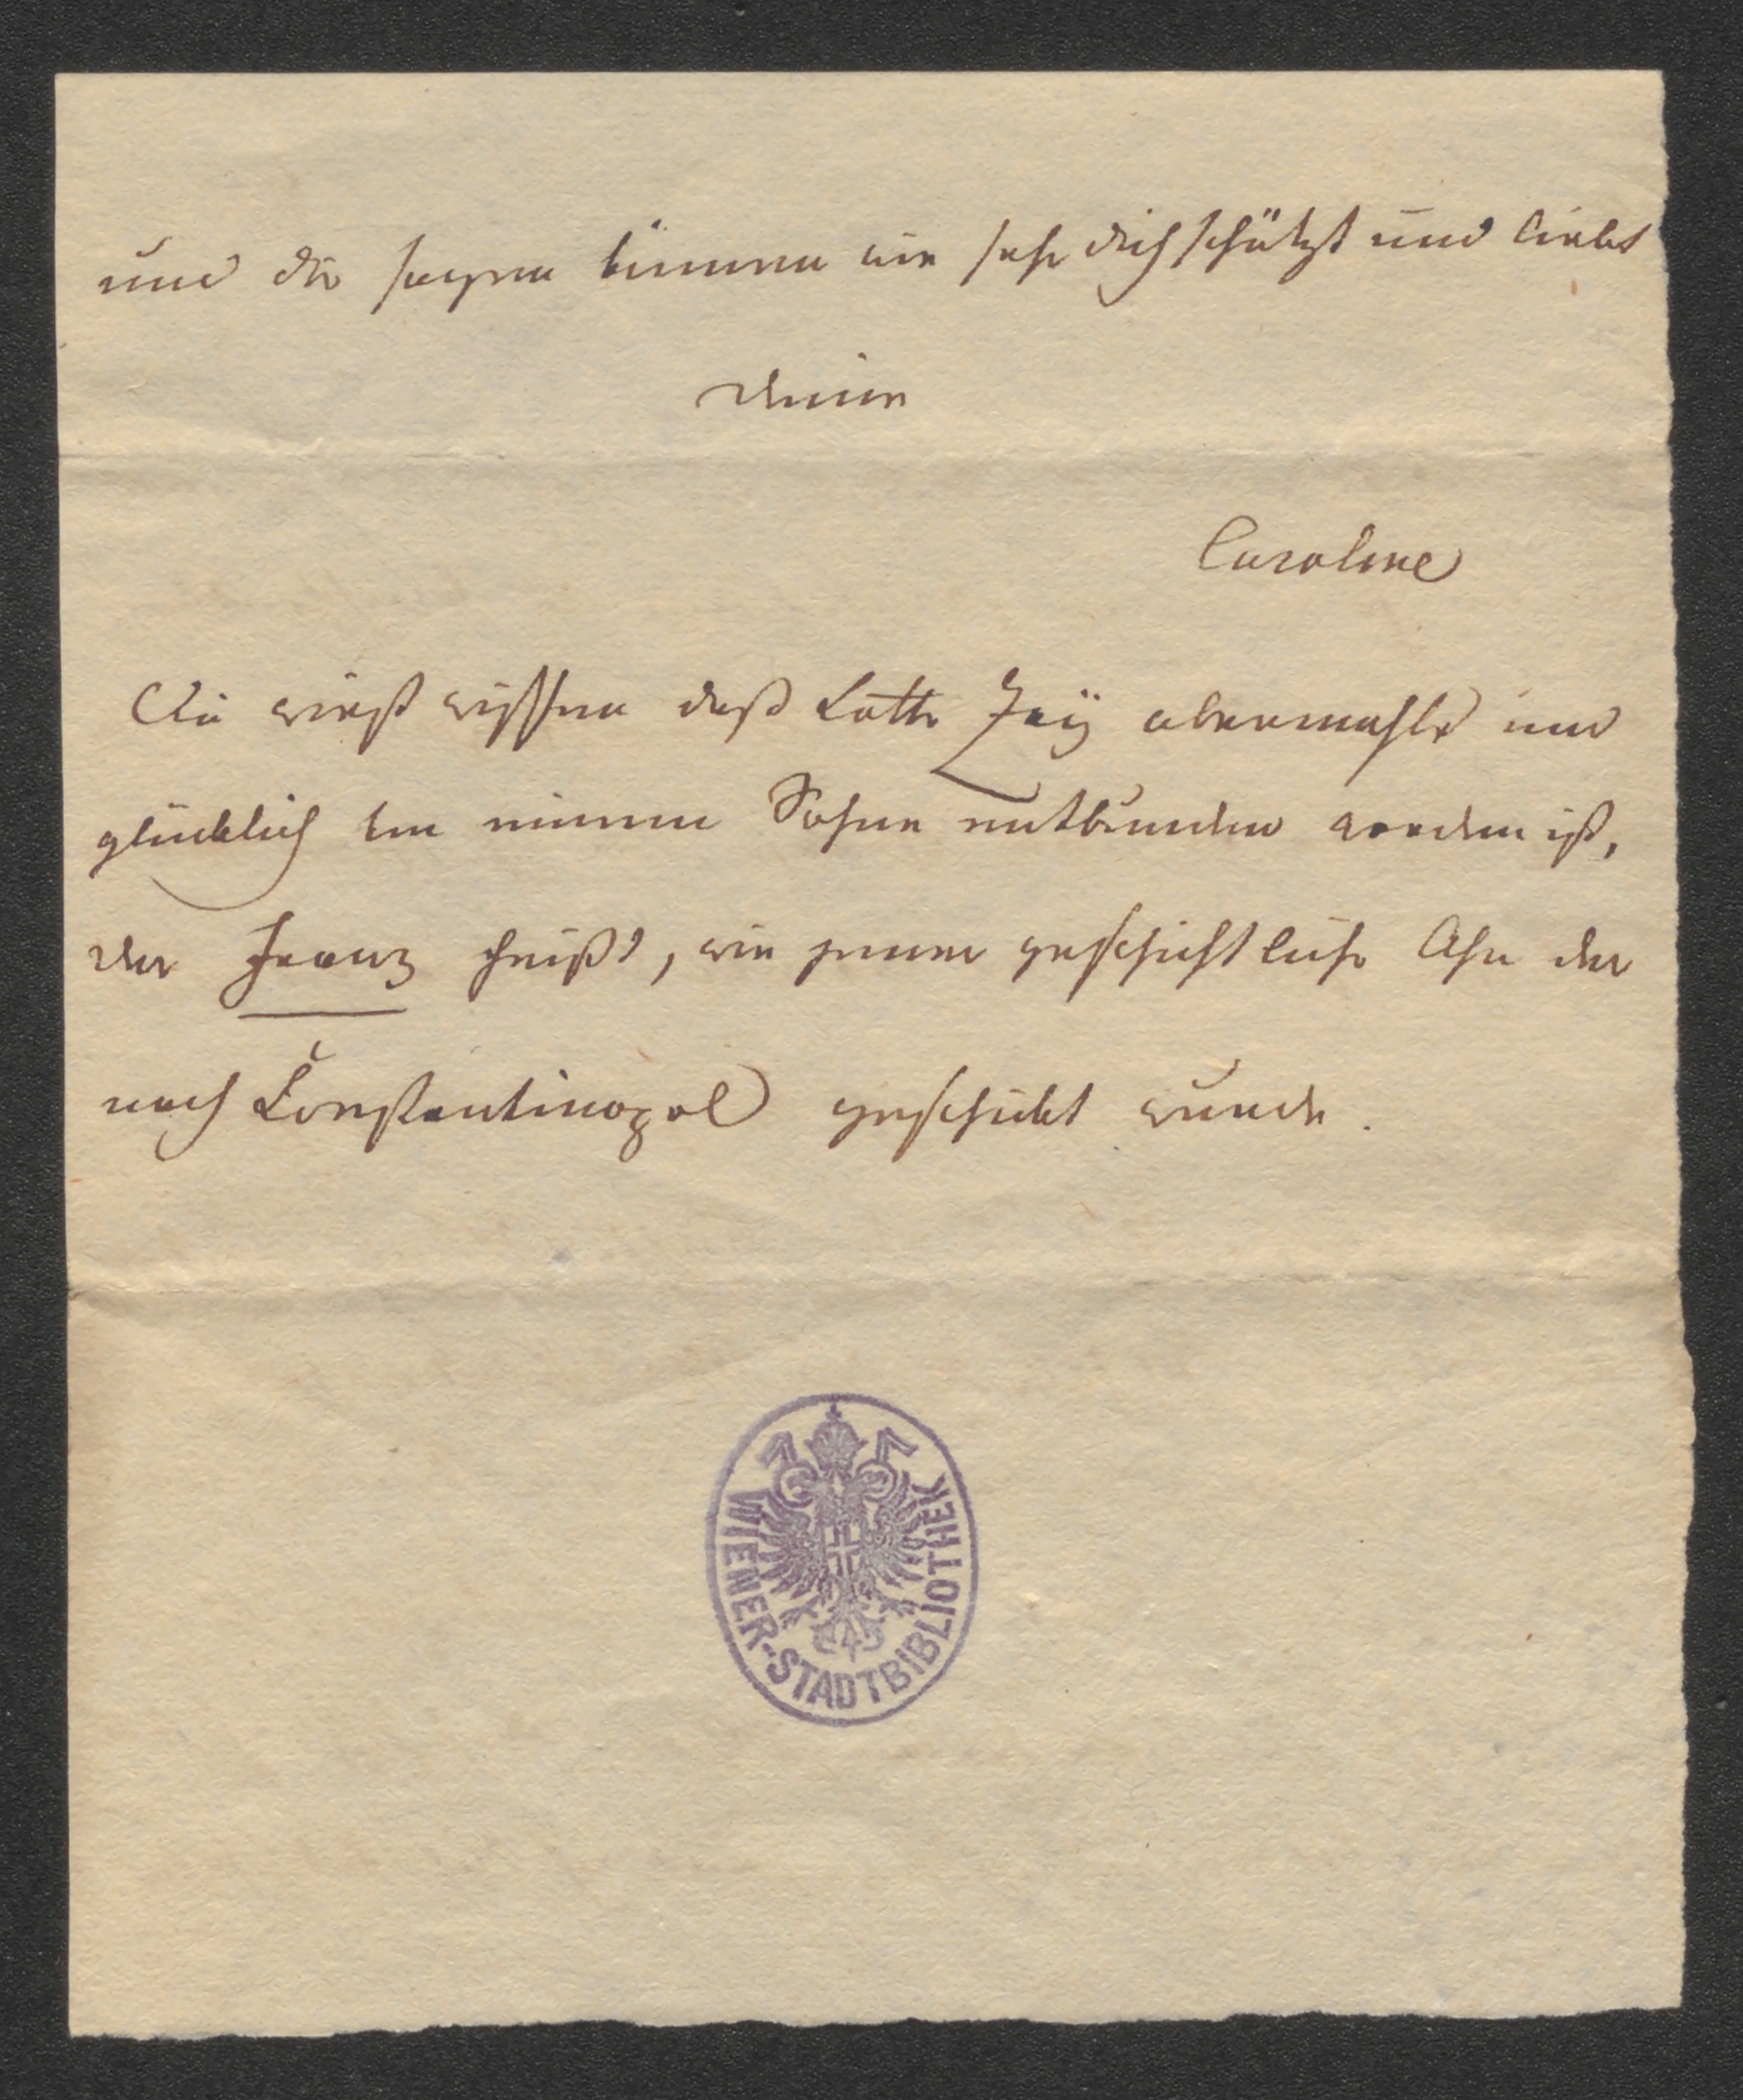 und dir sagen können wie sehr dich schätzt und liebt
deine
Caroline
Du wirst wissen daß Lotte Zay abermahls und
glücklich von einem Sohne entbunden worden ist,
der Franz heißt, wie jener geschichtliche Ahn der
nach Konstantinopel geschickt wurde.
WIENER-STADTBIBLIOTHEK